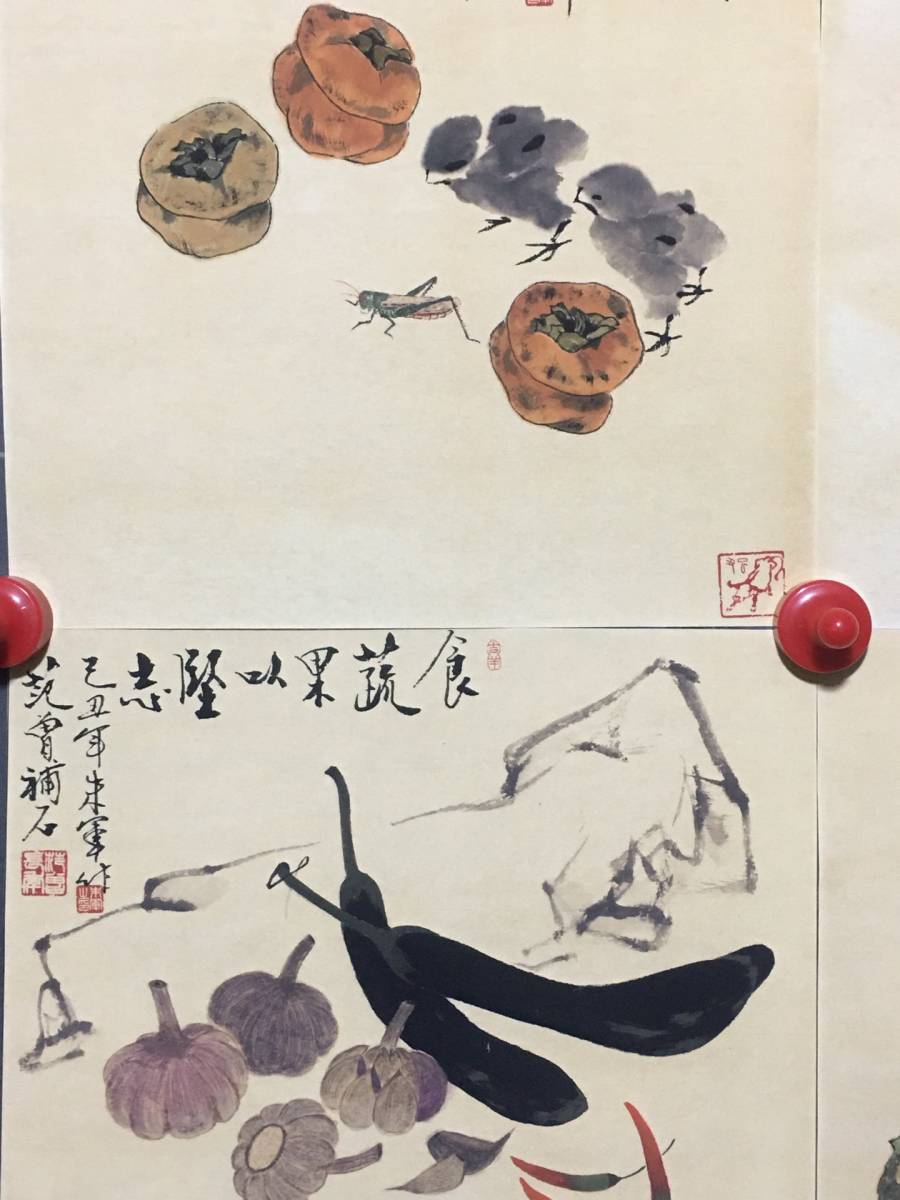 食蔬果以堅志
己丑年朱軍作
范曾補石